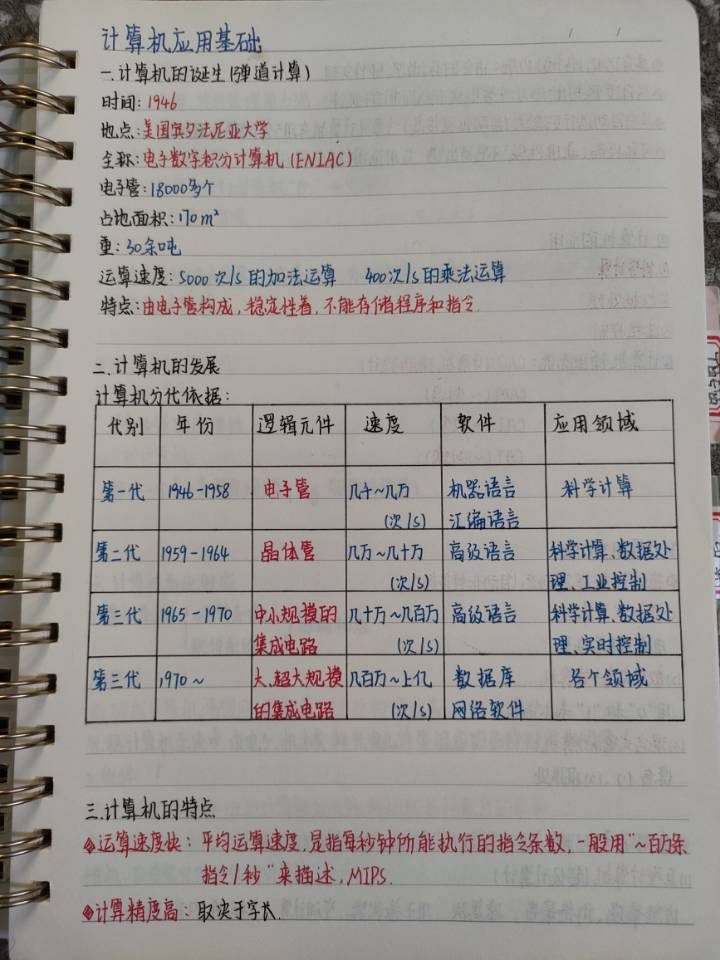 计算机应用基础
一.计算机的诞生(弹道计算)
时间:1946
地点:美国宾夕法尼亚大学
全称:电子数字积分计算机(ENIAC)
电子管:18000多个
占地面积:170m²
重:30余吨
运算速度:5000次/s的加法运算 400次/s的乘法运算
特点:由电子管构成,稳定性差,不能存储程序和指令.
二.计算机的发展
计算机分代依据:
代别 年份 逻辑元件 速度 软件 应用领域
第一代 1946-1958 电子管 几千~几万 机器语言 科学计算
(次/s) 汇编语言
第二代 1959-1964 晶体管 几万~几十万 高级语言 科学计算、数据处
(次/s) 理、工业控制
第三代 1965-1970 中小规模的 几十万~几百万 高级语言 科学计算、数据处
集成电路 (次/s) 理、实时控制
第三代 1970~ 大、超大规模 几百万~上亿 数据库 各个领域
的集成电路 (次/s) 网络软件
三.计算机的特点
◆运算速度快:平均运算速度,是指每秒钟所能执行的指令条数,一般用"~百万条
指令/秒"来描述,MIPS.
◆计算精度高:取决于字长.